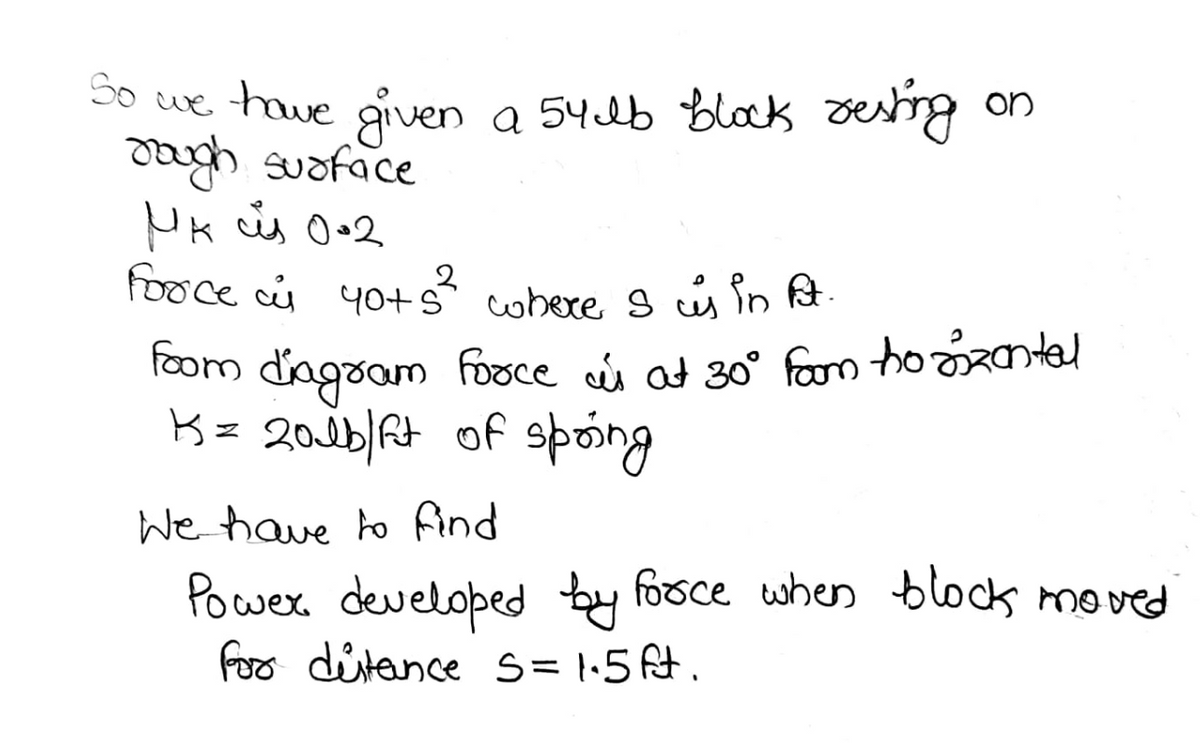 So we have given a 54 lb block resting on
rough surface
μK is 0.2
Force is 40+s² where s is in ft.
From diagram Force is at 30° from horizontal
K = 20lb/ft of spring
We have to find
Power developed by force when block moved
for distance s = 1.5 ft.